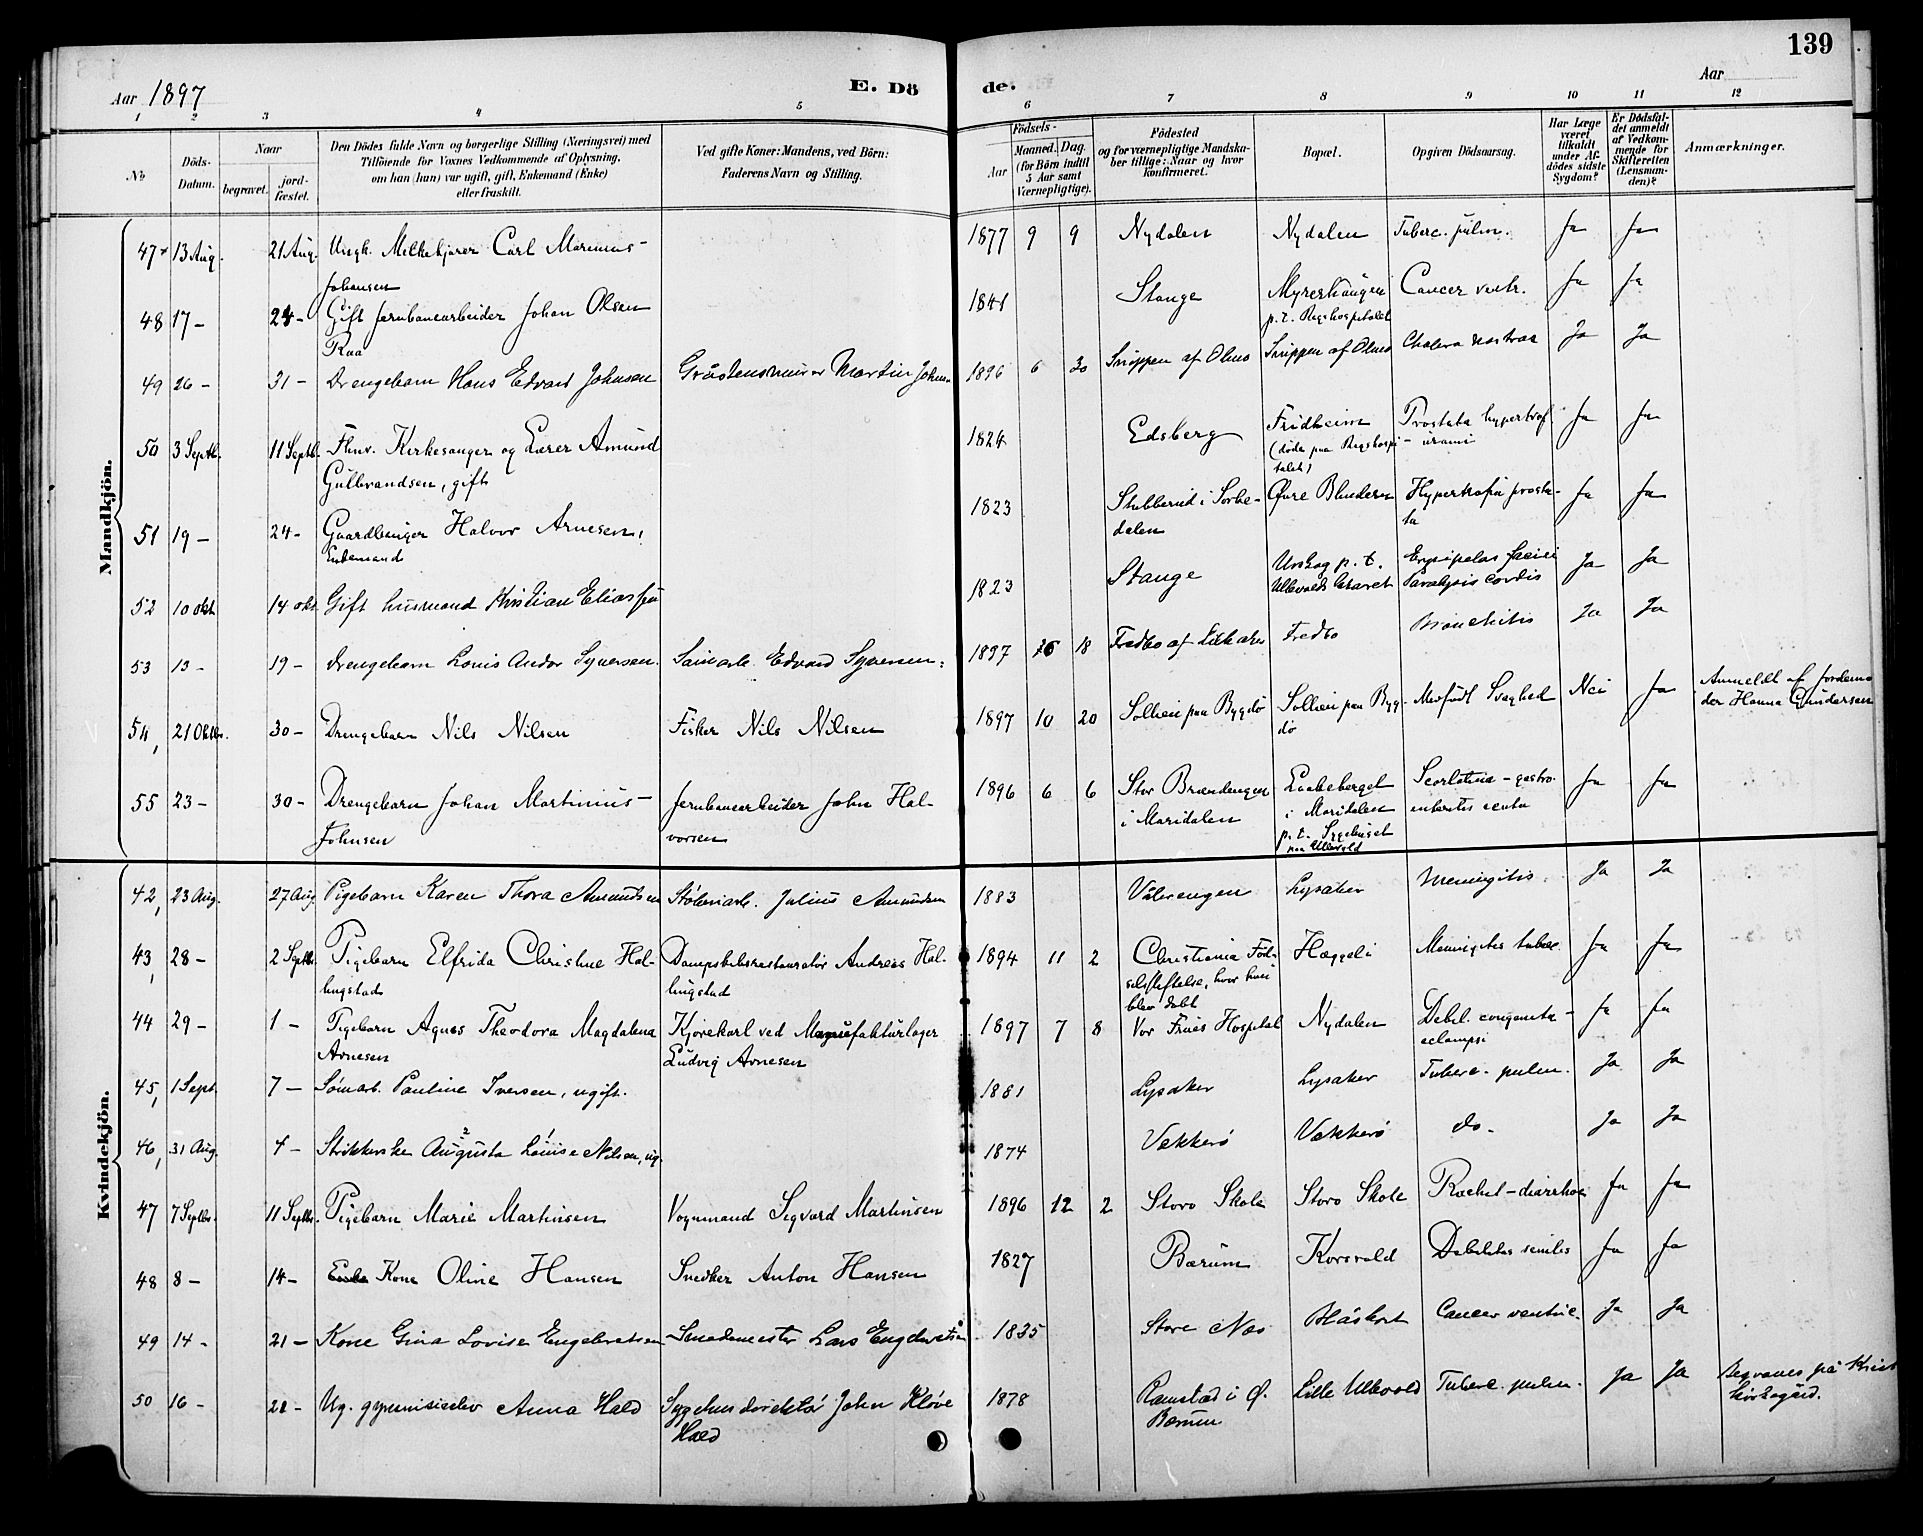 139
Aar 1897
E. Dö
de.
Aar
1 2 3 4 5 6 7 8 9 10 11 12
No
Döds-Datum.
Naar
begravet.
jord-fæstet.
Den Dödes fulde Navn og borgerlige Stilling (Næringsvei) med
Tilföiende for Voxnes Vedkommende af Oplysning,
om han (hun) var ugift, gift, Enkemand (Enke)
eller fraskilt.
Ved gifte Koner: Mandens, ved Börn:
Faderens Navn og Stilling.
Födsels-
Aar
Maaned. Dag.
(for Börn indtil
5 Aar samt
Værnepligtige).
Födested
og for værnepligtige Mandska-
ber tillige: Naar og hvor
konfirmeret.
Bopæl.
Opgiven Dödsaarsag.
Har Læge
været
tilkaldt
under Af-
dödes sidste
Sygdom?
Er Dödsfal-
det anmeldt
af Vedkom-
mende for
Skifteretten
(Lensman-
den)?
Anmærkninger.
Mandkjön.
47 13 Aug. 21 Aug. Ungk. Melkekjører Carl Marenius 1877 9 9 Nydalen Nydalen Tuberc. pulm. Ja Ja
Johansen
48 17 - 24 - Gift Jernbanearbeider Johan Olsen 1841 Stange Myrerhaugen Cancer ventr. Ja Ja
Raa p.t. Rigshospitalet
49 26 - 31 - Drengebarn Hans Edvard Johnsen Gråstensmurer Martin Johns. 1896 6 30 Snippen af Olmo Snippen af Olmo Cholera nostras Ja Ja
50 3 Septb. 11 Septb. Fhnv. Kirkesanger og Lærer Amund 1824 Edsberg Fridheim Prostata hypertrof Ja Ja
Gulbrandsen, gift (døde paa Rigshospi- - urœmi
talet)
51 19 - 24 - Gaardbruger Halvor Arnesen, 1823 Stubberud i Sørke- Øvre Blindern Hypertrofia prosta- Ja Ja
Enkemand dalen ta
52 10 okt 14 okt Gift husmand Kristian Eliassen 1823 Stange Urskog p.t. Erysipelas faciei Ja Ja
Ullevolds Lazaret Paralysis cordis
53 13 - 19 - Drengebarn Louis Andor Syversen. Edvard Syversen. 1897 18 Fredbo af Fredbo Bronchitis Ja Ja
54, 21 Oktbr. 30 - Drengebarn Nils Nilsen Fisker Nils Nilsen 1897 10 20 Solheim paa Bygdø Solheim paa Byg- Medfødt Svaghed Nei Ja Anmeldt af Jordemo
dø der Hanna Gundersen
55 23 - 30 - Drengebarn Johan Martinius Jernbanearbeider John Hal- 1896 6 6 Stor Brændengen Laakeberget Scarlatina - gastro- Ja Ja
Johnsen vorsen i Maridalen i Maridalen enteritis acuta
p.t. Sygehuset
paa Ullevold
Kvindekjön.
42, 23 Aug. 27 Aug. Pigebarn Karen Thora Amundsen Støberiarb. Julius Amundsen 1883 Vålerengen Lysaker Meningitis. Ja Ja
43, 28 - 2 Septbr. Pigebarn Elfrida Christine Hal- Dampskibsrestauratør Andreas Hal- 1894 11 2 Christiania Fød- Hæggeli Meningitis tuberc Ja Ja
lingstad lingstad selsstiftelse, hvor hun
blev døbt
44 29 - 1 - Pigebarn Agnes Theodora Magdalena Kjørekarl ved Manufakturlager 1897 7 8 Vor Frues Hospital Nydalen Debil. congenita - Ja Ja
Arnesen Ludvig Arnesen eclampsi
45, 1 Sept. 7 - Sømarb. Pauline Iversen, ugift. 1881 Lysaker Lysaker Tuberc. pulm. Ja Ja
46, 31 Aug. 4 - Strikkerske Augusta Lovise Nilsen, ug. 1874 Vækkerø Vækkerø do. Ja Ja
47 7 Septbr. 11 Septbr. Pigebarn Marie Martinsen Vognmand Sigvard Martinsen 1896 12 2 Storo Skole Storo Skole Rachit - diarrhoe Ja Ja
48 8 - 14 - Enke Kone Oline Hansen Snedker Anton Hansen 1827 Bærum Korsvold Debilitas senilis Ja Ja
49 14 - 21 - Kone Gina Lovise Engebretsen Smedmester Lars Engebretsen 1835 Store Næs Blåskort Cancer ventric. Ja Ja
50 16 - 21 - Ug. gymnasieelev Anna Hald Sygehusdirektør John Kløve 1878 Ramstad i Ø. Lille Ullevold Tuberc. pulm. Ja Ja Begraves på Krist
Hald Bærum kirkegård.